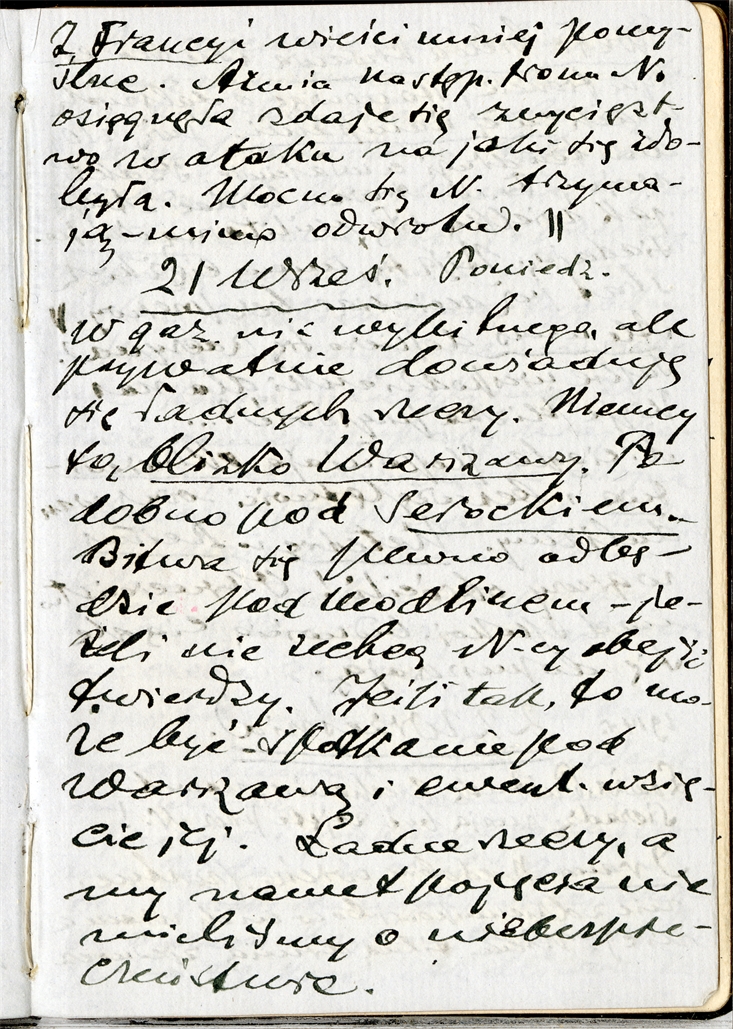 Z Francyi wieści mniej pomy-
ślne. Armia następ. tronu N.
osiągnęła zdaje się zwycięst-
wo w ataku na jaki się zdo-
była. Mocno się N. trzyma-
ją – mimo odwrotu. ||
21 Wrześ. Poniedz.
W gaz. nic wybitnego, ale
prywatnie dowiaduję
się ładnych rzeczy. Niemcy
są blizko Warszawy. Po
dobno pod Serockiem.
Bitwa się pewno odbę-
dzie pod Modlinem – je-
żeli nie zechcą N-cy obejść
twierdzy. Jeśli tak, to mo-
że być spotkanie pod
Warszawą i ewent. wzię-
cie jej. Ładne rzeczy, a
my nawet pojęcia nie
mieliśmy o niebezpie-
czeństwie.